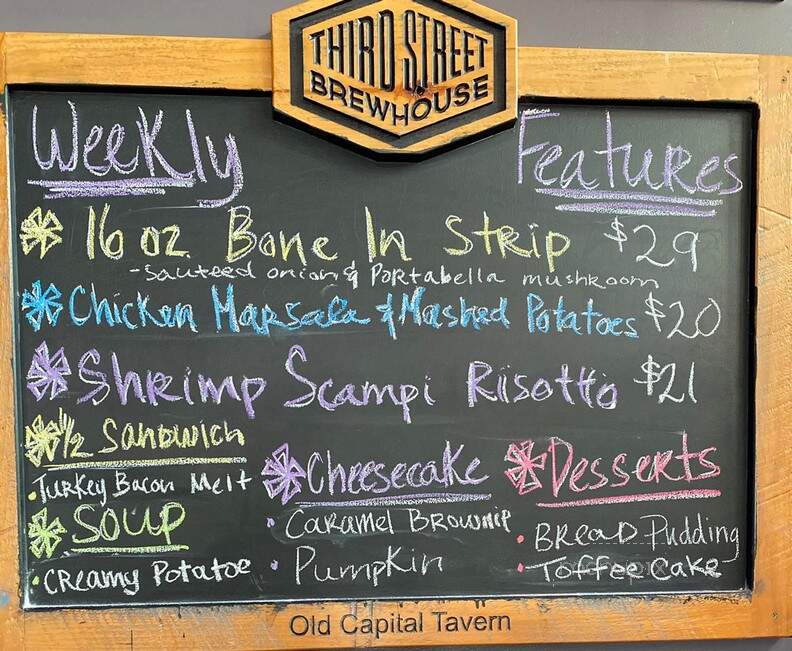 THIRD STREET
BREWHOUSE
Weekly Features
16 oz. Bone In Strip $29
-sauteed onions & Portabella mushroom
Chicken Marsala & Mashed Potatoes $20
Shrimp Scampi Risotto $21
1/2 Sandwich
.Turkey Bacon Melt
Soup
·Creamy Potatoe
Cheesecake
· Caramel Brownie
· Pumpkin
Desserts
· Bread Pudding
· Toffee Cake
Old Capital Tavern